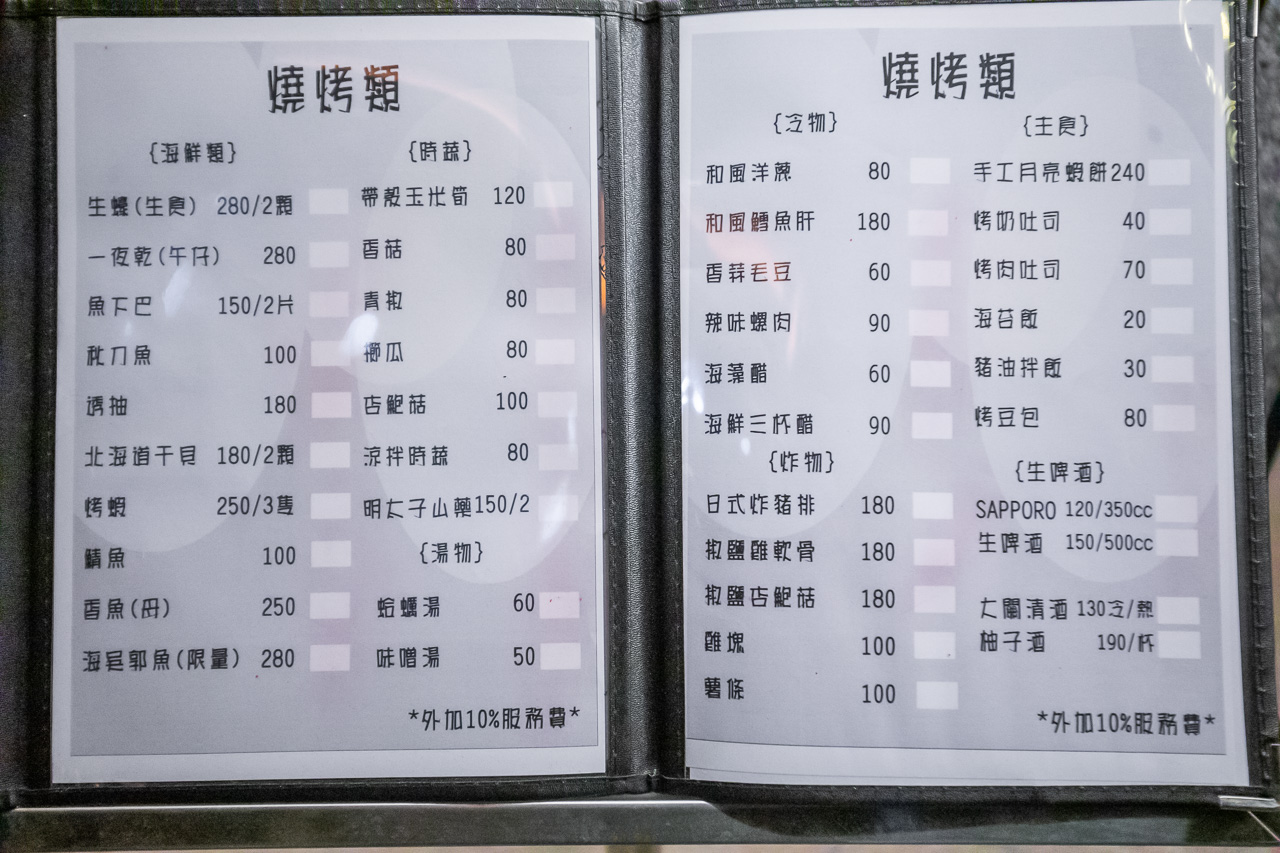 燒烤類
{海鮮類}
生蠔(生食) 280/2顆
一夜乾(午仔) 280
魚下巴 150/2片
秋刀魚 100
透抽 180
北海道干貝 180/2顆
烤蝦 250/3隻
鯖魚 100
香魚(母) 250
海皇郭魚(限量) 280
{時蔬}
帶殼玉米筍 120
香菇 80
青椒 80
櫛瓜 80
杏鮑菇 100
涼拌時蔬 80
明太子山藥150/2
{湯物}
蛤蠣湯 60
味噌湯 50
*外加10%服務費*
燒烤類
{冷物}
和風洋蔥 80
和風鱈魚肝 180
香蒜毛豆 60
辣味螺肉 90
海藻醋 60
海鮮三杯醋 90
{炸物}
日式炸豬排 180
椒鹽雞軟骨 180
椒鹽杏鮑菇 180
雞塊 100
薯條 100
{主食}
手工月亮蝦餅240
烤奶吐司 40
烤肉吐司 70
海苔飯 20
豬油拌飯 30
烤豆包 80
{生啤酒}
SAPPORO 120/350cc
生啤酒 150/500cc
大關清酒 130冷/熱
柚子酒 190/杯
*外加10%服務費*